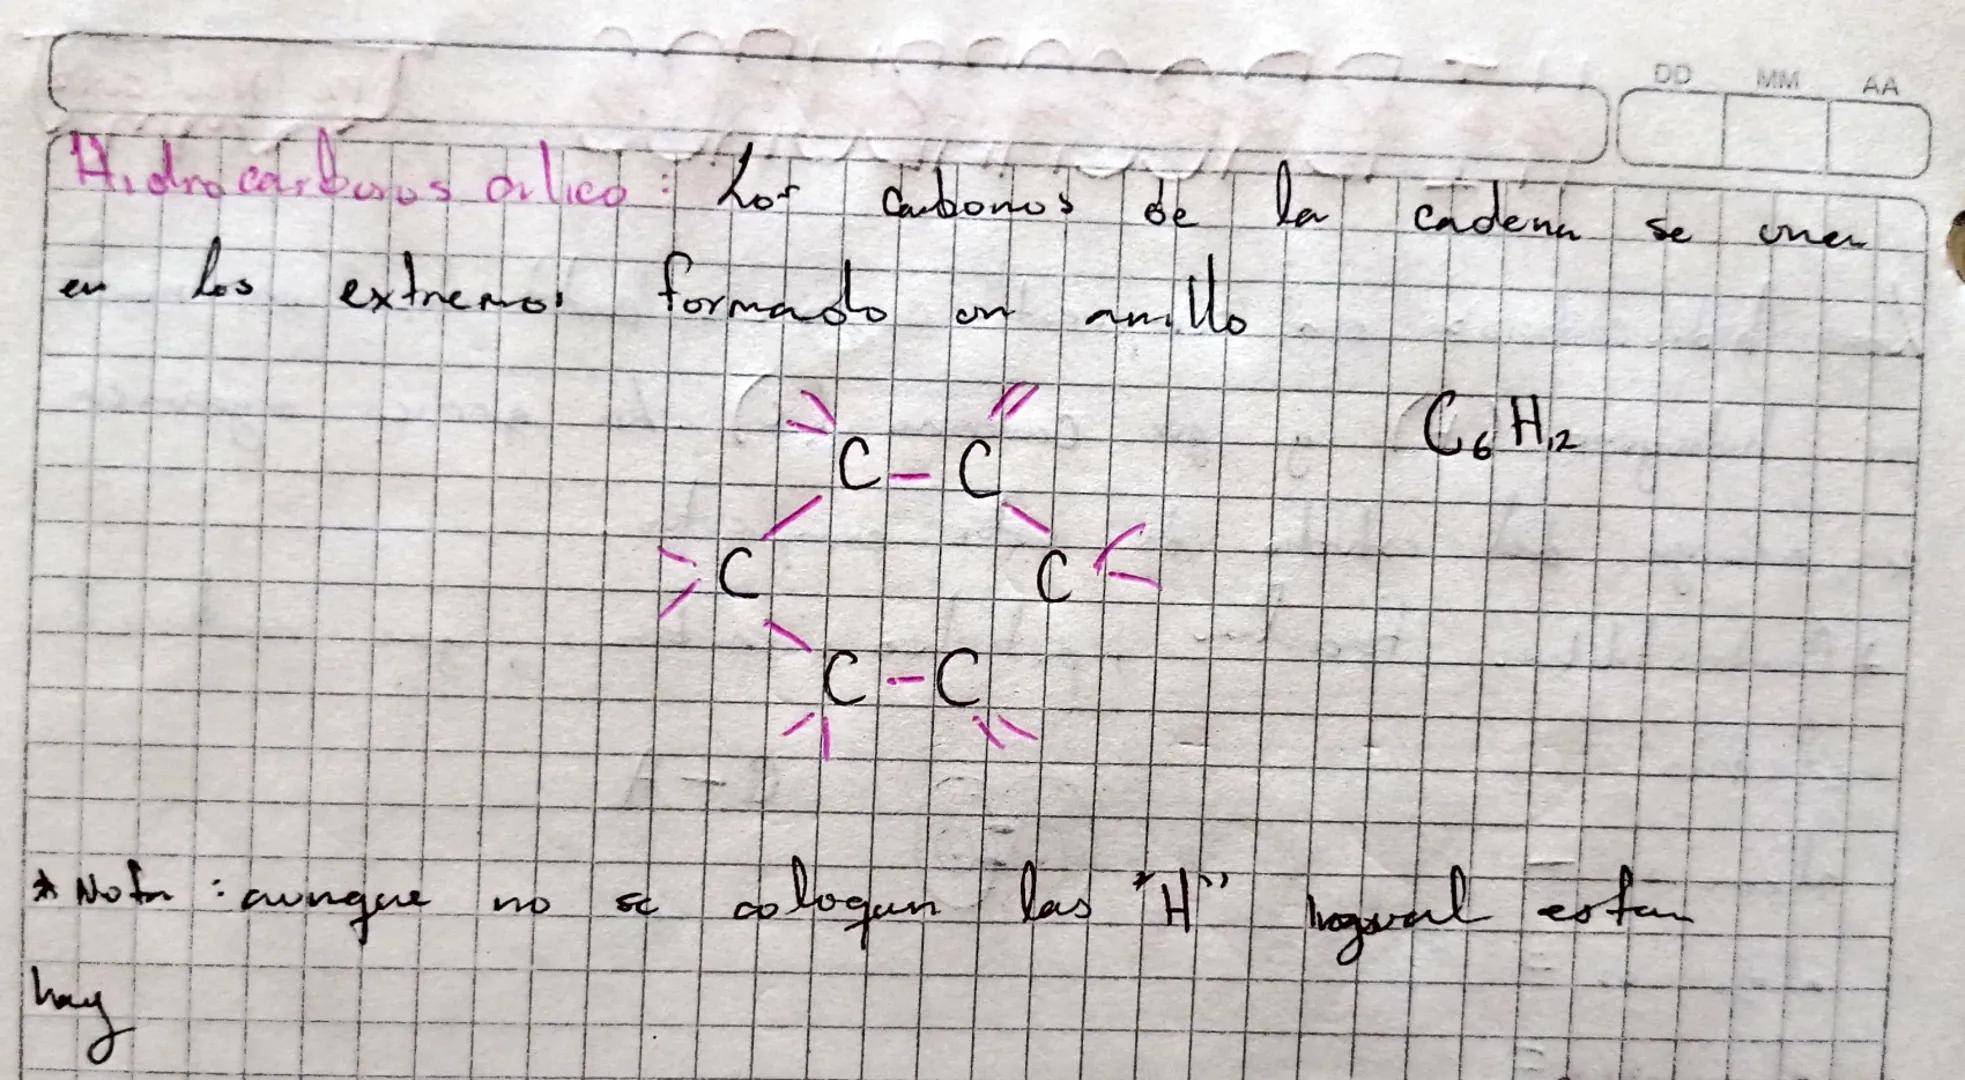 DD MM AA
Hidrocarburos cilico: Los carbonos de la cadena se unen
en los extremos formado un anillo
C - C
C C
C - C
C6H12
* Nota: aunque no se cologan las "H" hogual estan
hay